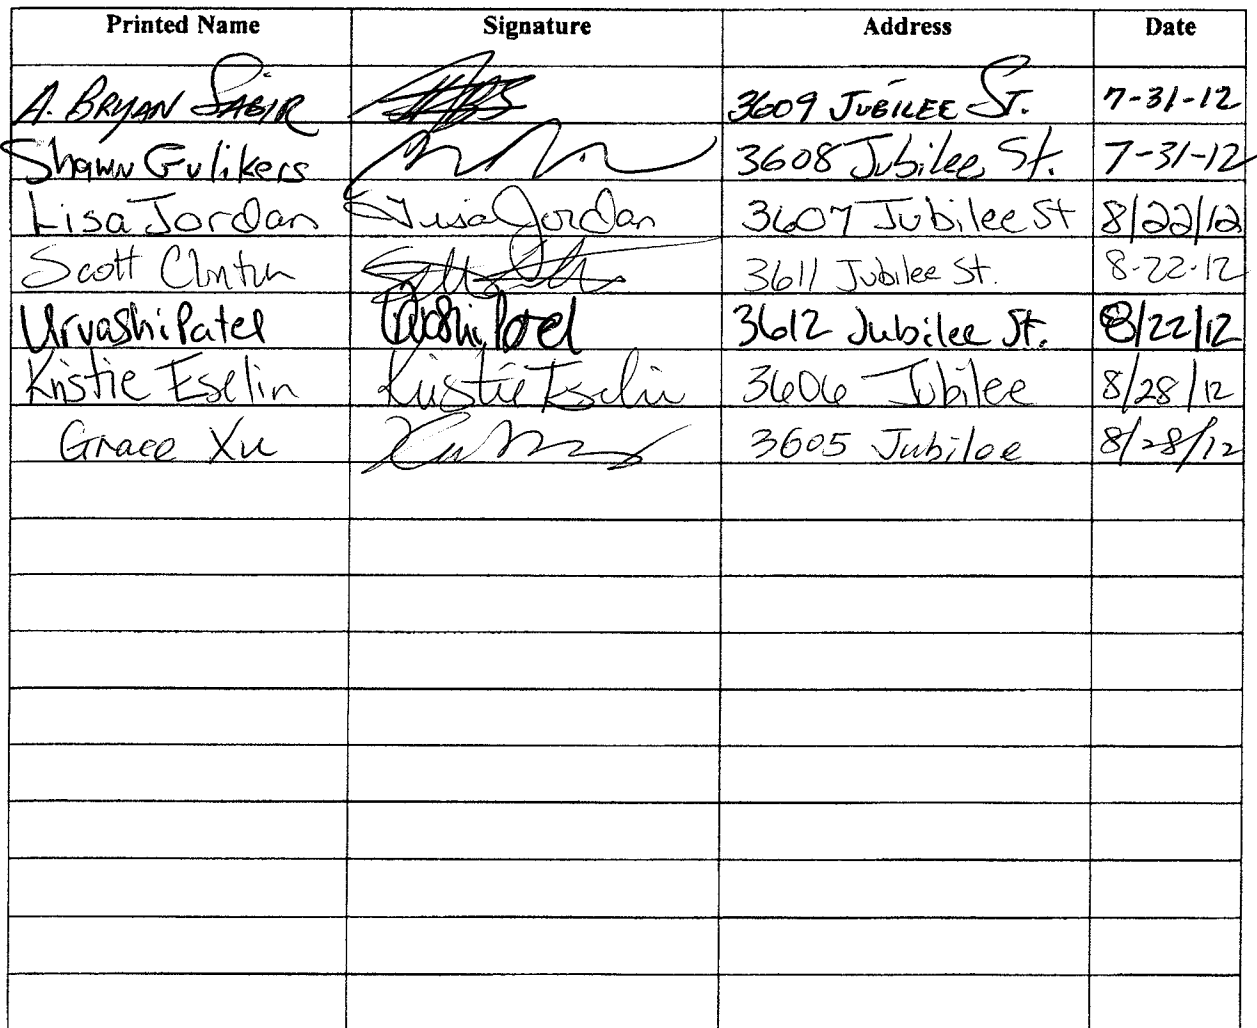 Printed Name Signature Address Date
A. BRYAN SABIR 3609 JUBILEE ST. 7-31-12
Shawn Gulikers 3608 Jubilee St. 7-31-12
Lisa Jordan Lisa Jordan 3607 Jubilee St 8/22/12
Scott Clinton 3611 Jubilee St. 8-22-12
Urvashi Patel Urvashi Patel 3612 Jubilee St. 8/22/12
Kristie Eselin Kristie Eselin 3606 Jubilee 8/28/12
Grace Xu 3605 Jubilee 8/28/12